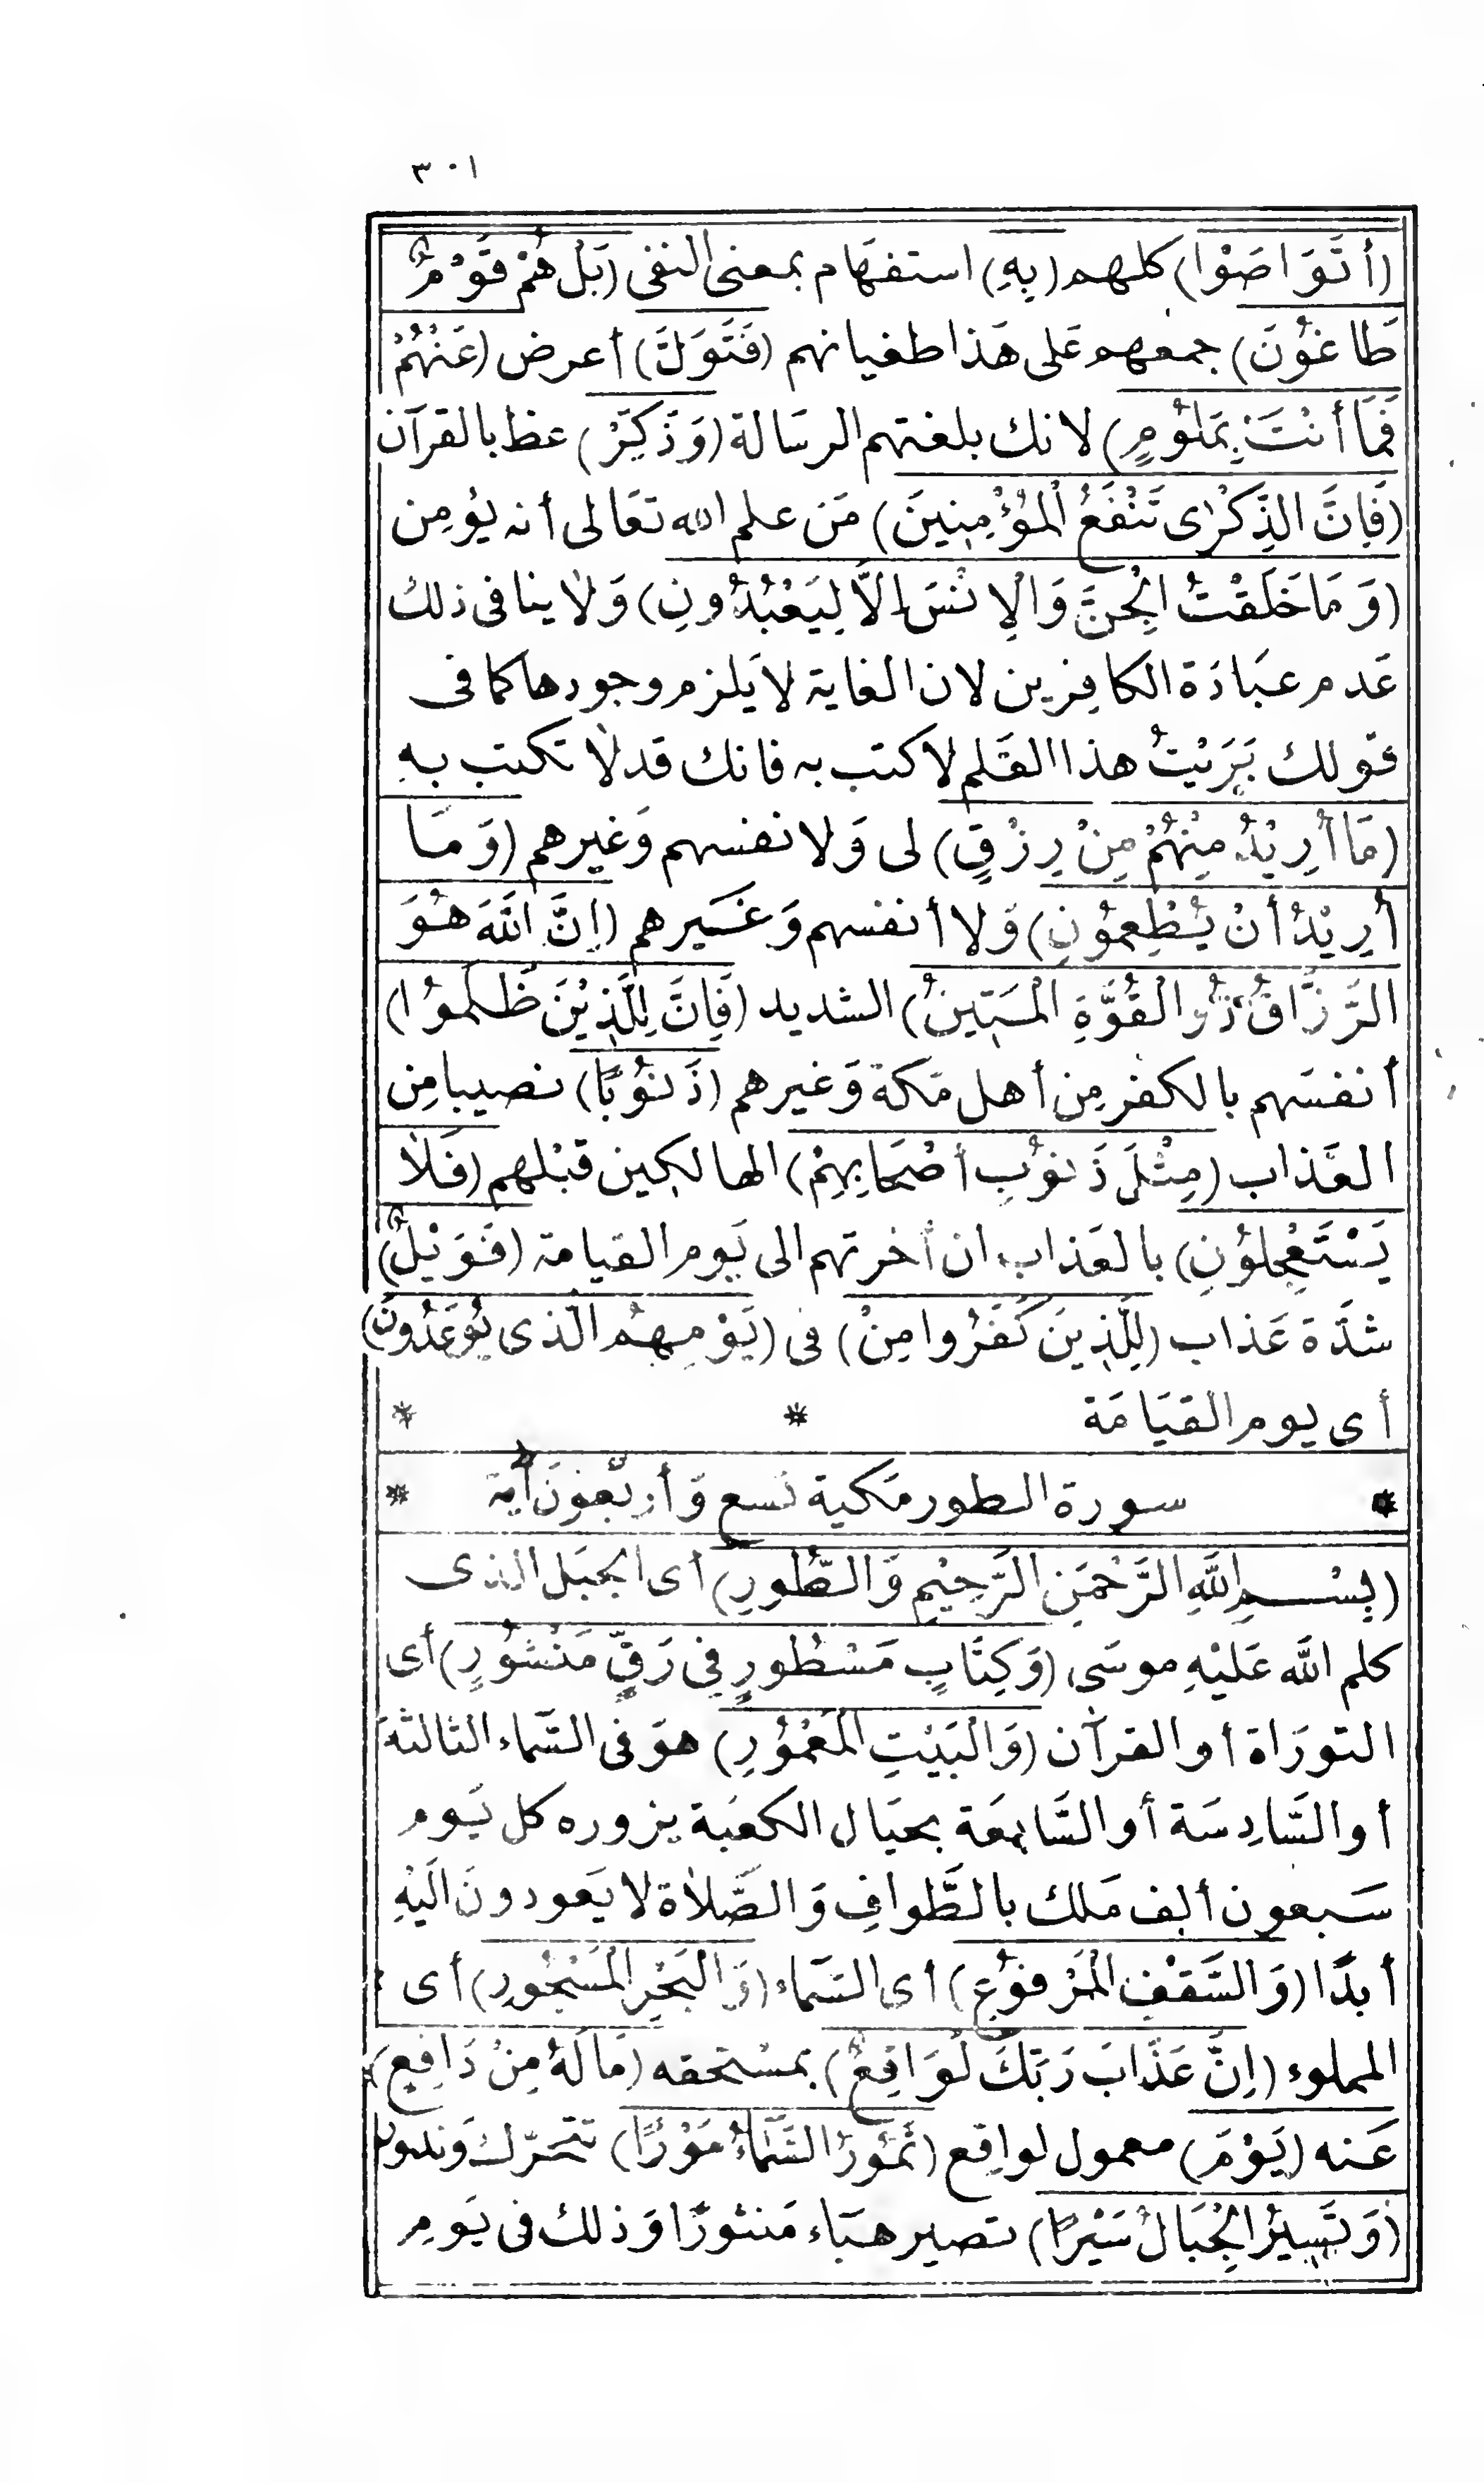 ٣٠١
(أَتَوَاصَوْا) كلهم (بِهِ) استفهام بمعنى النفى (بَلْ هُمْ قَوْمٌ
طَاغُوْنَ) جمعهم عَلى هَذا طغيانهم (فَتَوَلَّ) أعرض (عَنْهُمْ
فَمَا أَنْتَ بِمَلُوْمٍ) لانك بلغتهم الرسَالة (وَذَكِّرْ) عظ بالقرآن
(فَاِنَّ الذِّكْرٰى تَنْفَعُ الْمُؤْمِنِينَ) مَن علم الله تعَالى أنه يؤمِن
(وَمَا خَلَقْتُ الْجِنَّ وَالْاِنْسَ اِلَّا لِيَعْبُدُونِ) وَلا ينافى ذلك
عَدم عبَادَة الكافِرين لان الغاية لا يَلزم وجودها كما فى
قولك بَرَيْتُ هذا القَلم لاكتب به فانك قد لا تكتب به
(مَا أُرِيْدُ مِنْهُمْ مِنْ رِزْقٍ) لى وَلا نفسهم وَغيرهم (وَمَا
أُرِيْدُ أَنْ يُطْعِمُوْنِ) وَلا أنفسهم وَغَيرهم (اِنَّ اللَّهَ هُوَ
الرَّزَّاقُ ذُو الْقُوَّةِ الْمَتِيْنُ) الشديد (فَاِنَّ لِلَّذِيْنَ ظَلَمُوْا)
أنفسَهم بالكفر مِن أهل مَكة وَغيرهم (ذَنُوْبًا) نصيبا مِن
العَذاب (مِثْلَ ذَنُوْبِ أَصْحَابِهِمْ) الهالكِين قبْلهم (فَلَا
يَسْتَعْجِلُوْنِ) بالعَذاب ان أخرتهم الى يَوم القيامة (فَوَيْلٌ)
شدَّة عَذاب (لِلَّذِينَ كَفَرُوا مِنْ) فى (يَوْمِهِمُ الَّذى يُوعَدُونَ)
أى يوم القيَامَة * *
* سورة الطور مَكية تسع وَأربَعُونَ آية *
(بِسْمِ اللَّهِ الرَّحْمَنِ الرَّحِيْمِ وَالطُّورِ) أى الجبَل الذى
كلم اللَّه عَلَيْهِ موسَى (وَكِتَابٍ مَسْطُورٍ فِى رَقٍّ مَنْشُوْرٍ) أى
التورَاة أو القرآن (وَالْبَيْتِ الْمَعْمُوْرِ) هوَ فى السَّمَاء الثالثة
أو السَّادِسَة أو السَّابِعَة بحيَال الكعبَة يزوره كل يَوم
سَبعون ألِف مَلك بالطَّوافِ وَالصَّلاة لا يَعودونَ اليْهِ
أبدًا (وَالسَّقْفِ الْمَرْفُوْعِ) أى السَّمَاء (وَالْبَحْرِ الْمَسْجُورِ) أى
المملوء (اِنَّ عَذَابَ رَبِّكَ لَوَاقِعٌ) بمسْتحقه (مَالَهُ مِنْ دَافِعٍ)
عَنه (يَوْمَ) معمول لواقِع (تَمُوْرُ السَّمَاءُ مَوْرًا) تتحَرّك وَتدور
(وَتَسِيْرُ الْجِبَالُ سَيْرًا) تصير هبَاء مَنثورًا وَذلك فى يَومِ